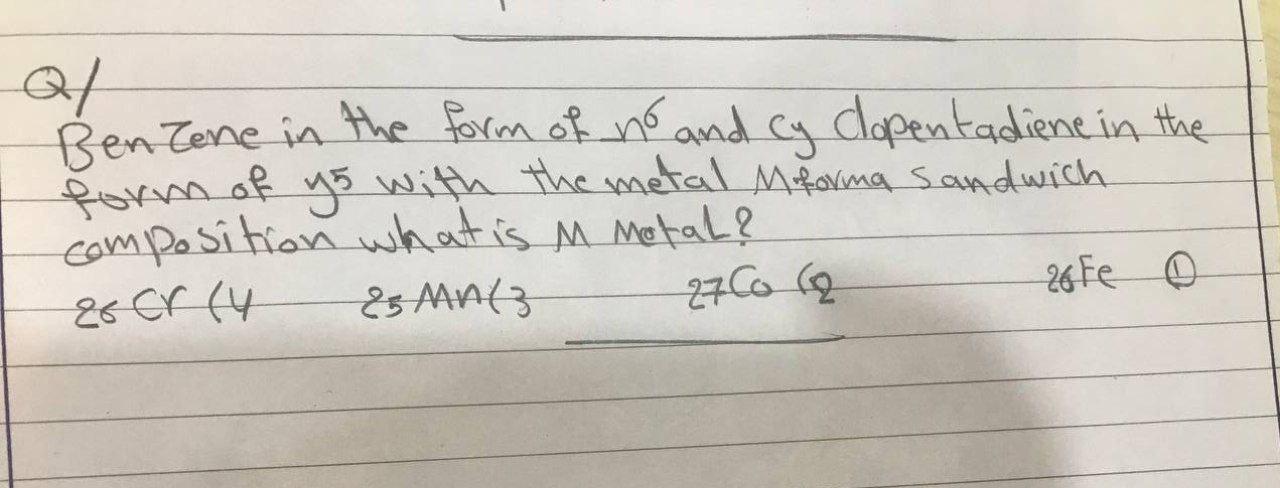 Q/
Benzene in the form of n6 and cy clopentadiene in the
form of y5 with the metal M forma sandwich
composition what is M metal?
26 Cr (4 25 Mn (3 27 Co (2 26 Fe ①